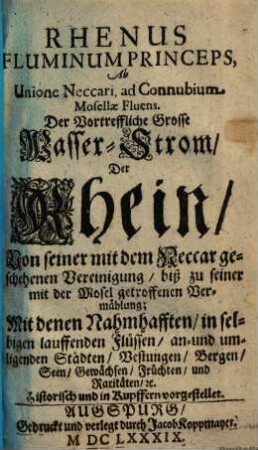 RHENUS
FLUMINUM PRINCEPS,
Ab
Unione Neccari, ad Connubium
Mosellæ Fluens.
Der Vortreffliche Grosse
Wasser-Strom/
Der
Rhein/
Von seiner mit dem Neccar ge-
schehenen Vereinigung / biß zu seiner
mit der Mosel getroffenen Ver-
mählung;
Mit denen Nahmhafften / in sel-
bigen lauffenden Flüssen / an- und um-
ligenden Städten / Vestungen / Bergen/
Seen / Gewächsen / Früchten / und
Raritäten / ꝛc.
Historisch und in Kupffern vorgestellet.
AUGSPURG/
Gedruckt und verlegt durch Jacob Koppmayer.
M DC LXXXIX.